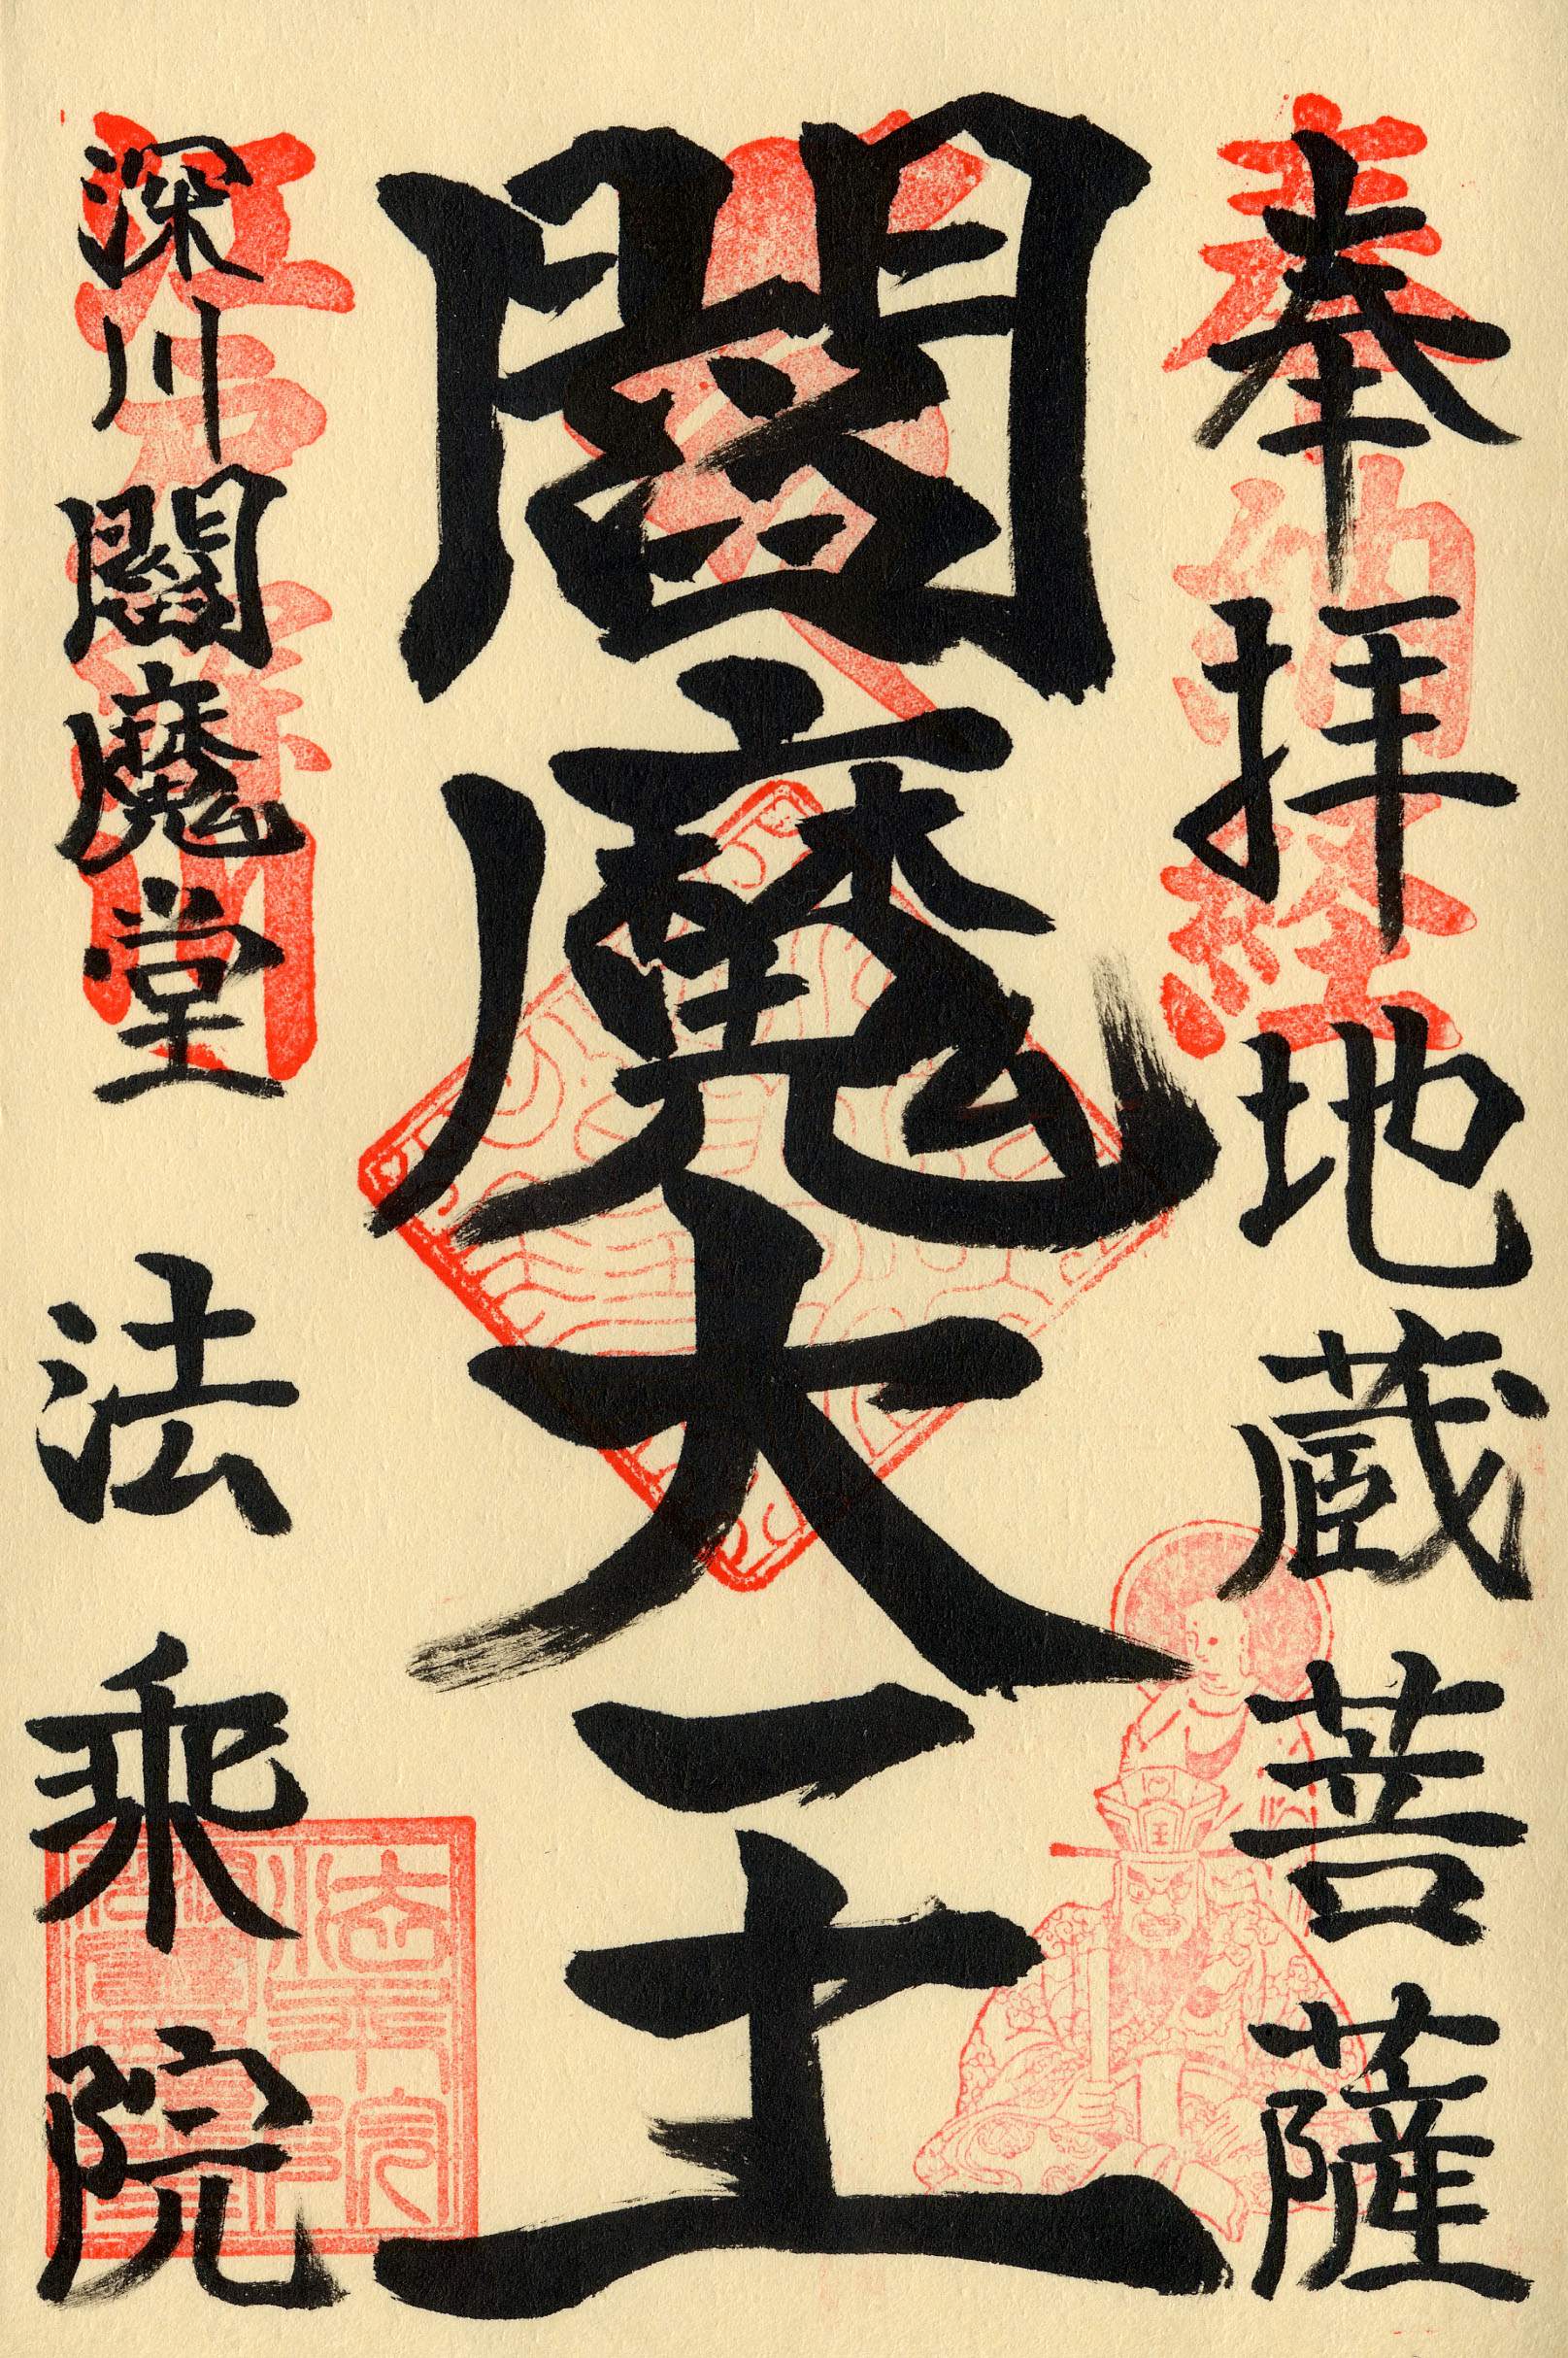 奉拝 地蔵菩薩
奉納経
閻魔大王
王
深川閻魔堂 法乗院
江戸深川
法乗院